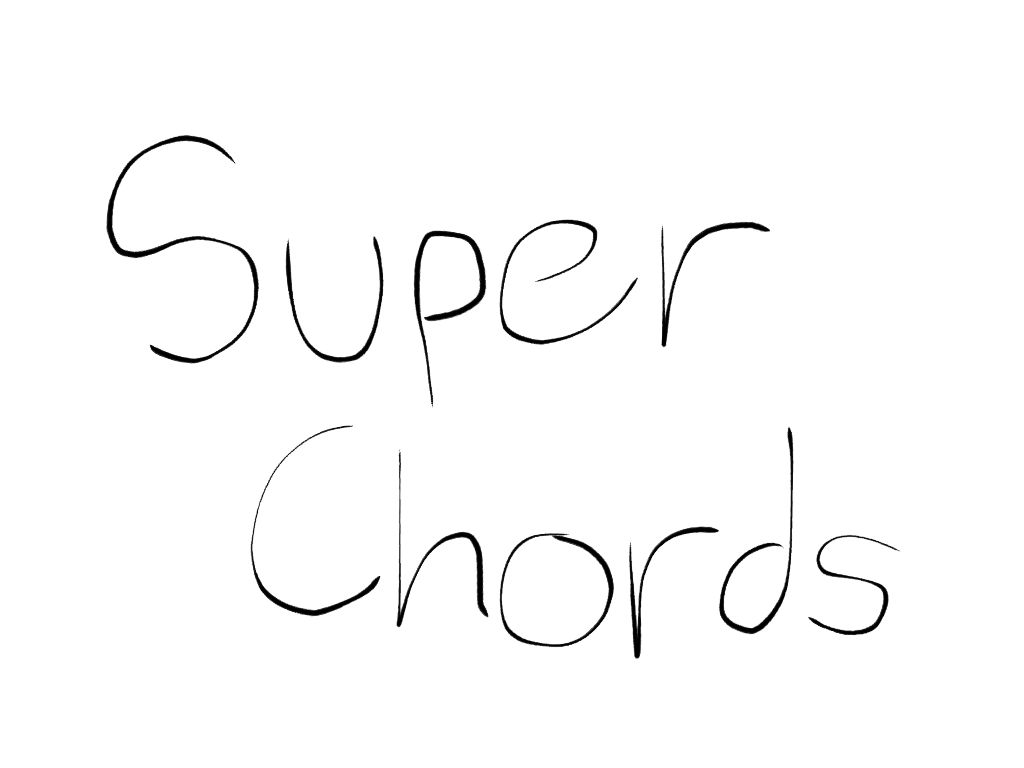 Super
Chords